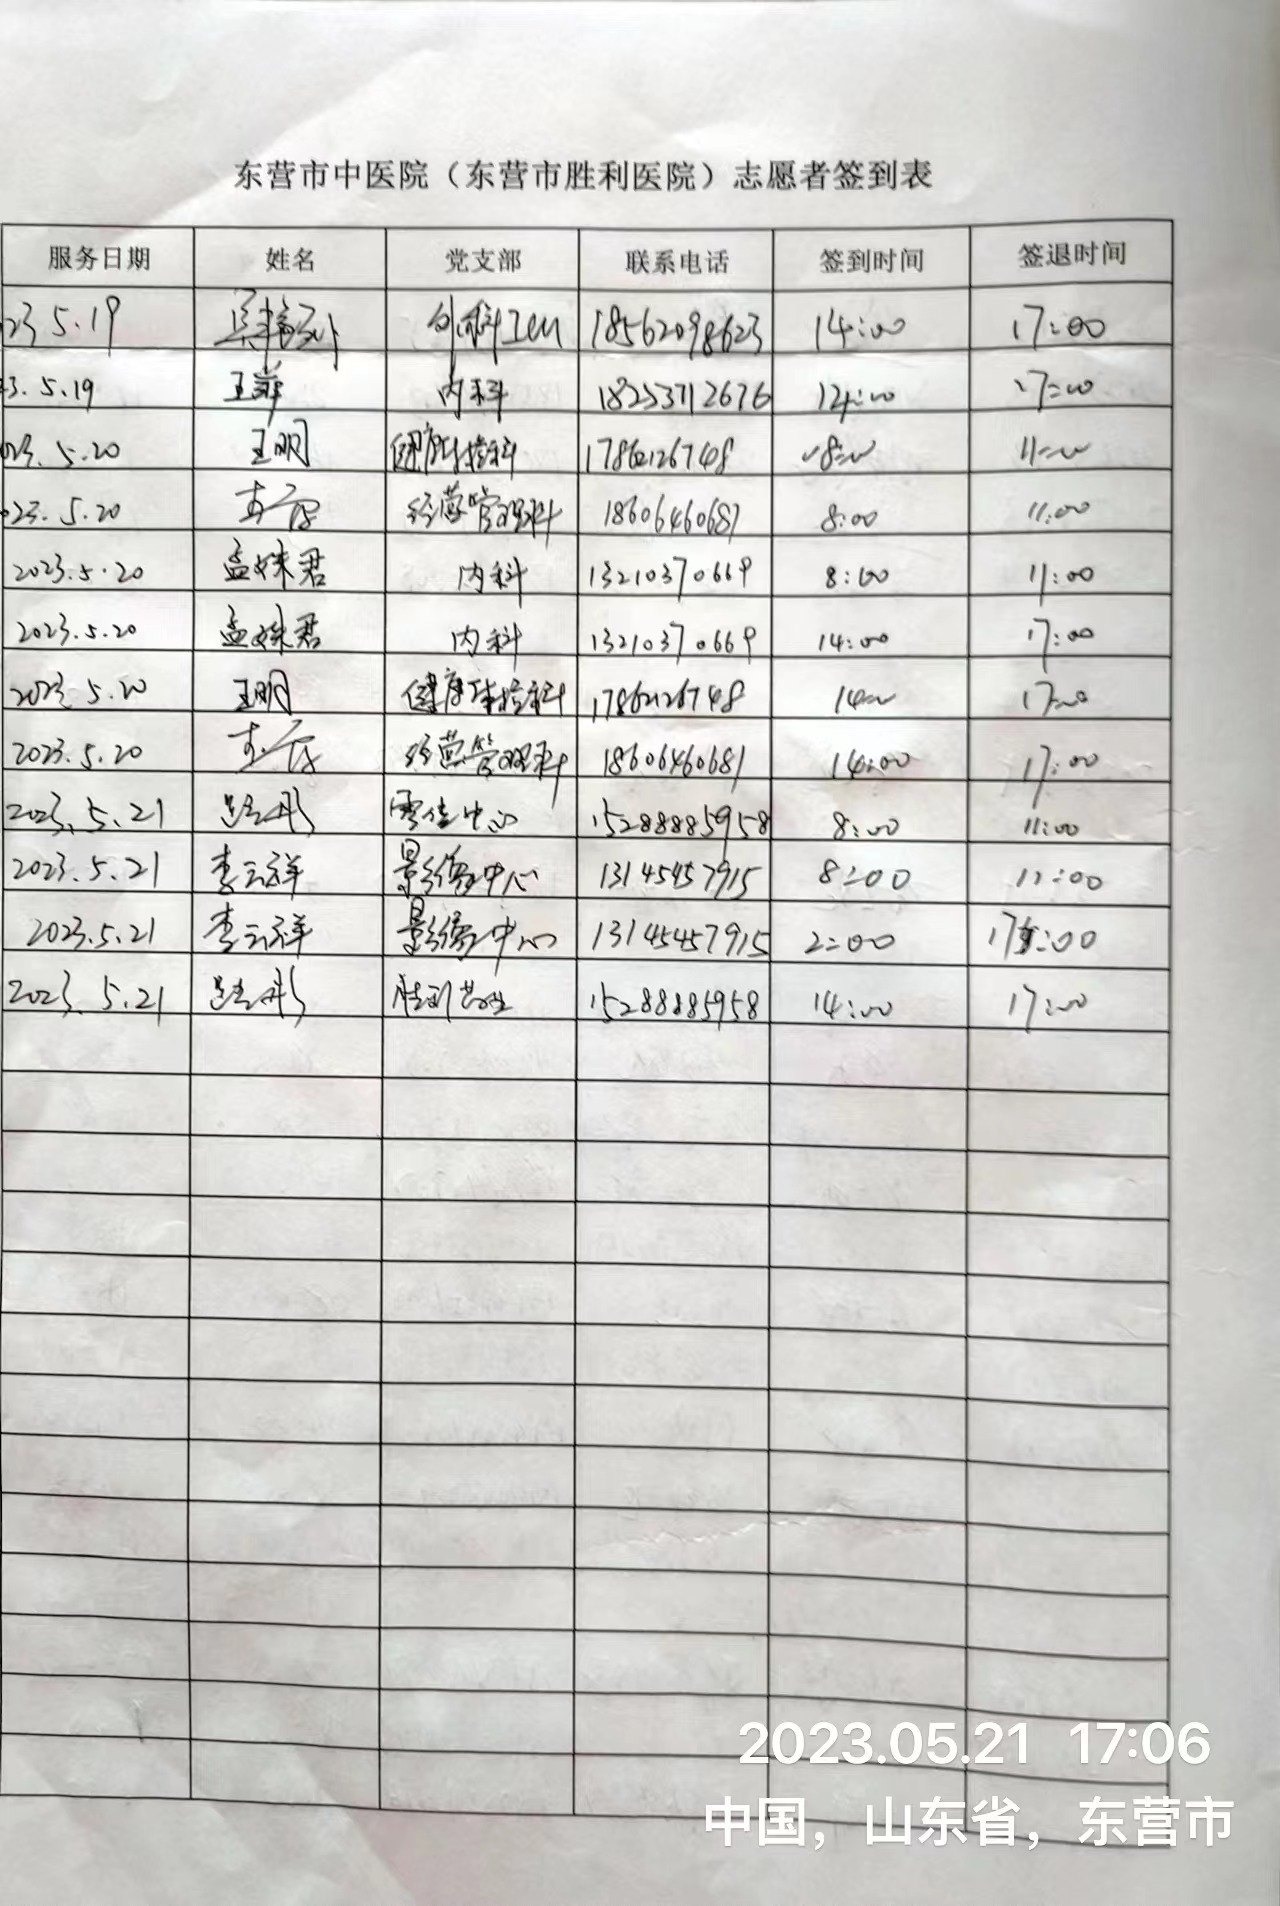 东营市中医院（东营市胜利医院）志愿者签到表
服务日期 姓名 党支部 联系电话 签到时间 签退时间
23 5.19 外科 18562098623 14:00 17:00
3.5.19 王萍 内科 18253712676 14:00 17:00
023.5.20 王明 健康体检科 17862126748 8:00 11:00
023.5.20 经营管理科 18606460681 8:00 11:00
2023.5.20 孟姝君 内科 13210370669 8:00 11:00
2023.5.20 孟姝君 内科 13210370669 14:00 17:00
2023 5.20 王明 健康体检科 17862126748 14:00 17:00
2023.5.20 经营管理科 18606460681 14:00 17:00
2023.5.21 中心 15288885958 8:00 11:00
2023.5.21 李云祥 影像中心 13145457915 8:00 11:00
2023.5.21 李云祥 影像中心 13145457915 2:00 17:00
2023.5.21 15288885958 14:00 17:00
2023.05.21 17:06
中国，山东省，东营市